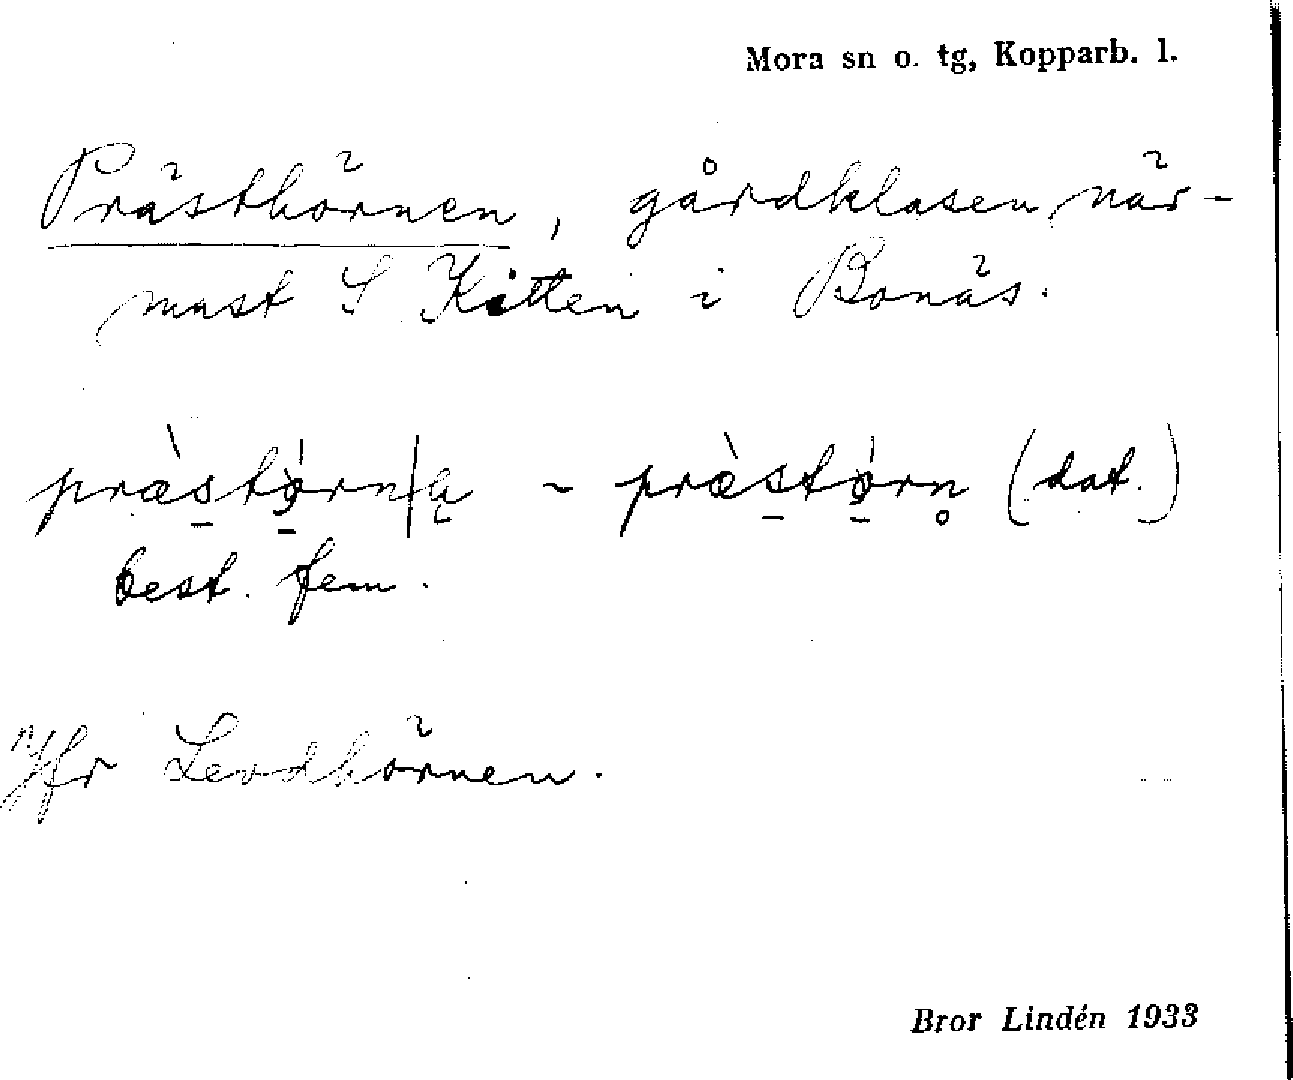 Mora sn o. tg, Kopparb. l.
Prästhörnen, gårdklasen när-
mast S Kitten i Bonäs.
præ̀stø̀rn|ą ~ præ̀stø̀rn̥ (dat.)
best. fem.
Jfr Levdhörnen.
Bror Lindén 1933